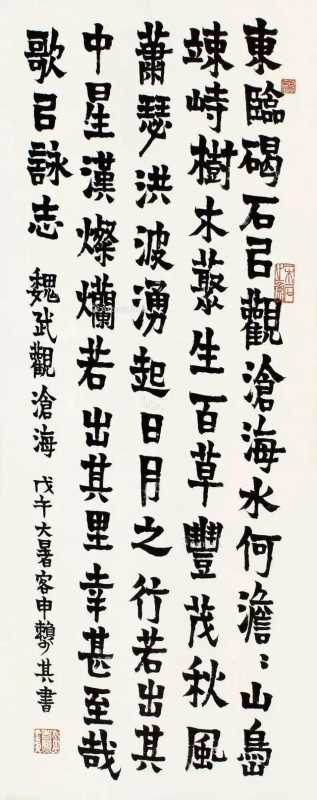 東臨碣石㠯觀滄海水何澹〻山島
竦峙樹木藂生百草豐茂秋風
蕭瑟洪波湧起日月之行若出其
中星漢燦爛若出其里幸甚至哉
歌㠯詠志 魏武觀滄海 戊午大暑客申賴少其書